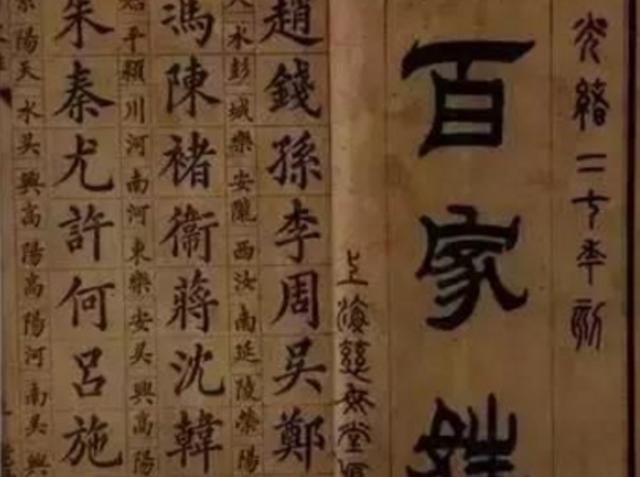 光緒二十年刻
百家姓
上海慈堂
趙錢孫李周吳鄭
水彭城樂安隴西汝南延陵滎陽
馮陳褚衛蔣沈韓
平潁川河南河東樂安吳興高陽
朱秦尤許何呂施
陽天水吳興高陽高陽河南吳興